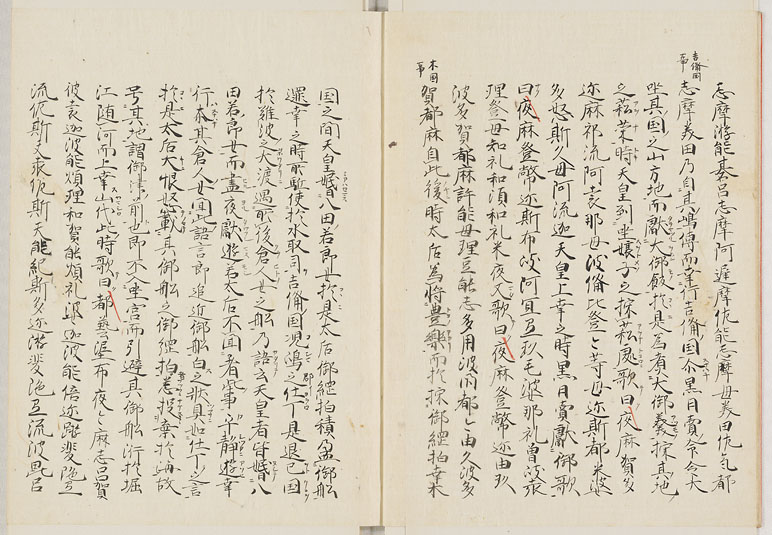 吉備國事
志摩游能碁呂志摩阿遅摩佐能志摩母美由佐氣都
志摩美由乃自其嶋傳而幸行吉備國尒黒日賣令大
坐其国之山方地而獻大御飯於是為煮大御羹採其地
之菘菜時天皇到坐嬢子之採菘處歌曰夜麻賀多
迩麻祁流阿袁那母岐備比登〻等母迩斯都米婆
多怒斯久母阿流迦天皇上幸之時黒日賣獻御歌
曰夜麻登幣迩斯布岐阿宜弖玖毛婆那礼曽岐袁
理登母知礼和須和礼米夜又歌曰夜麻登幣迩由玖
波多賀都麻許能母理豆能志多用波閇都〻由久波多
木國事
賀都麻自此後時太后為将豊樂而於採御縄拍幸木
国之間天皇婚八田若郎女於是太后御縄拍積盈御船
還幸之時所駈使於水取司吉備國児嶋之仕丁是退己国
於難波之大渡遇所後倉人女之船乃語云天皇者皆婚八
田若郎女而晝夜戯遊若太后不聞看此事乎静遊幸
行尒其倉人女聞此語言即追近御船白之状具如仕丁之言
於是太后大恨怒載其御船之御縄拍悉投棄於海故
号其地謂御津前也即不入坐宮而引避其御船泝於堀
江随河而上幸山代此時歌曰都藝泥布夜〻麻志呂賀
波袁迦波能煩理和賀能煩礼婆〻迦波能倍迩淤斐陀弖
流佐斯夫袁佐斯夫能紀斯多迩淤斐陀弖流波毗呂